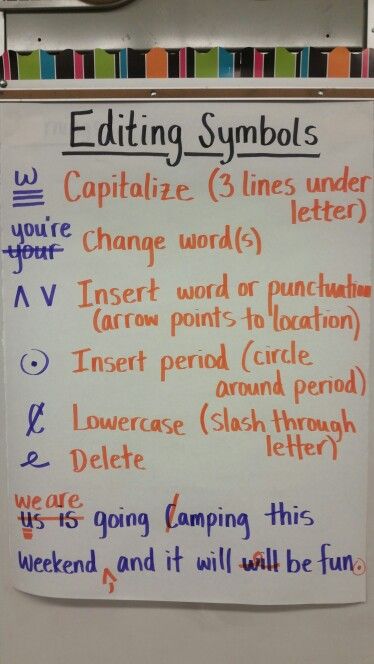 Editing Symbols
w Capitalize (3 lines under
letter)
you're
your Change word(s)
∧ ∨ Insert word or punctuation
(arrow points to location)
⊙ Insert period (circle
around period)
C Lowercase (slash through
letter)
e Delete
we are
us is going Camping this
weekend, and it will will be fun.